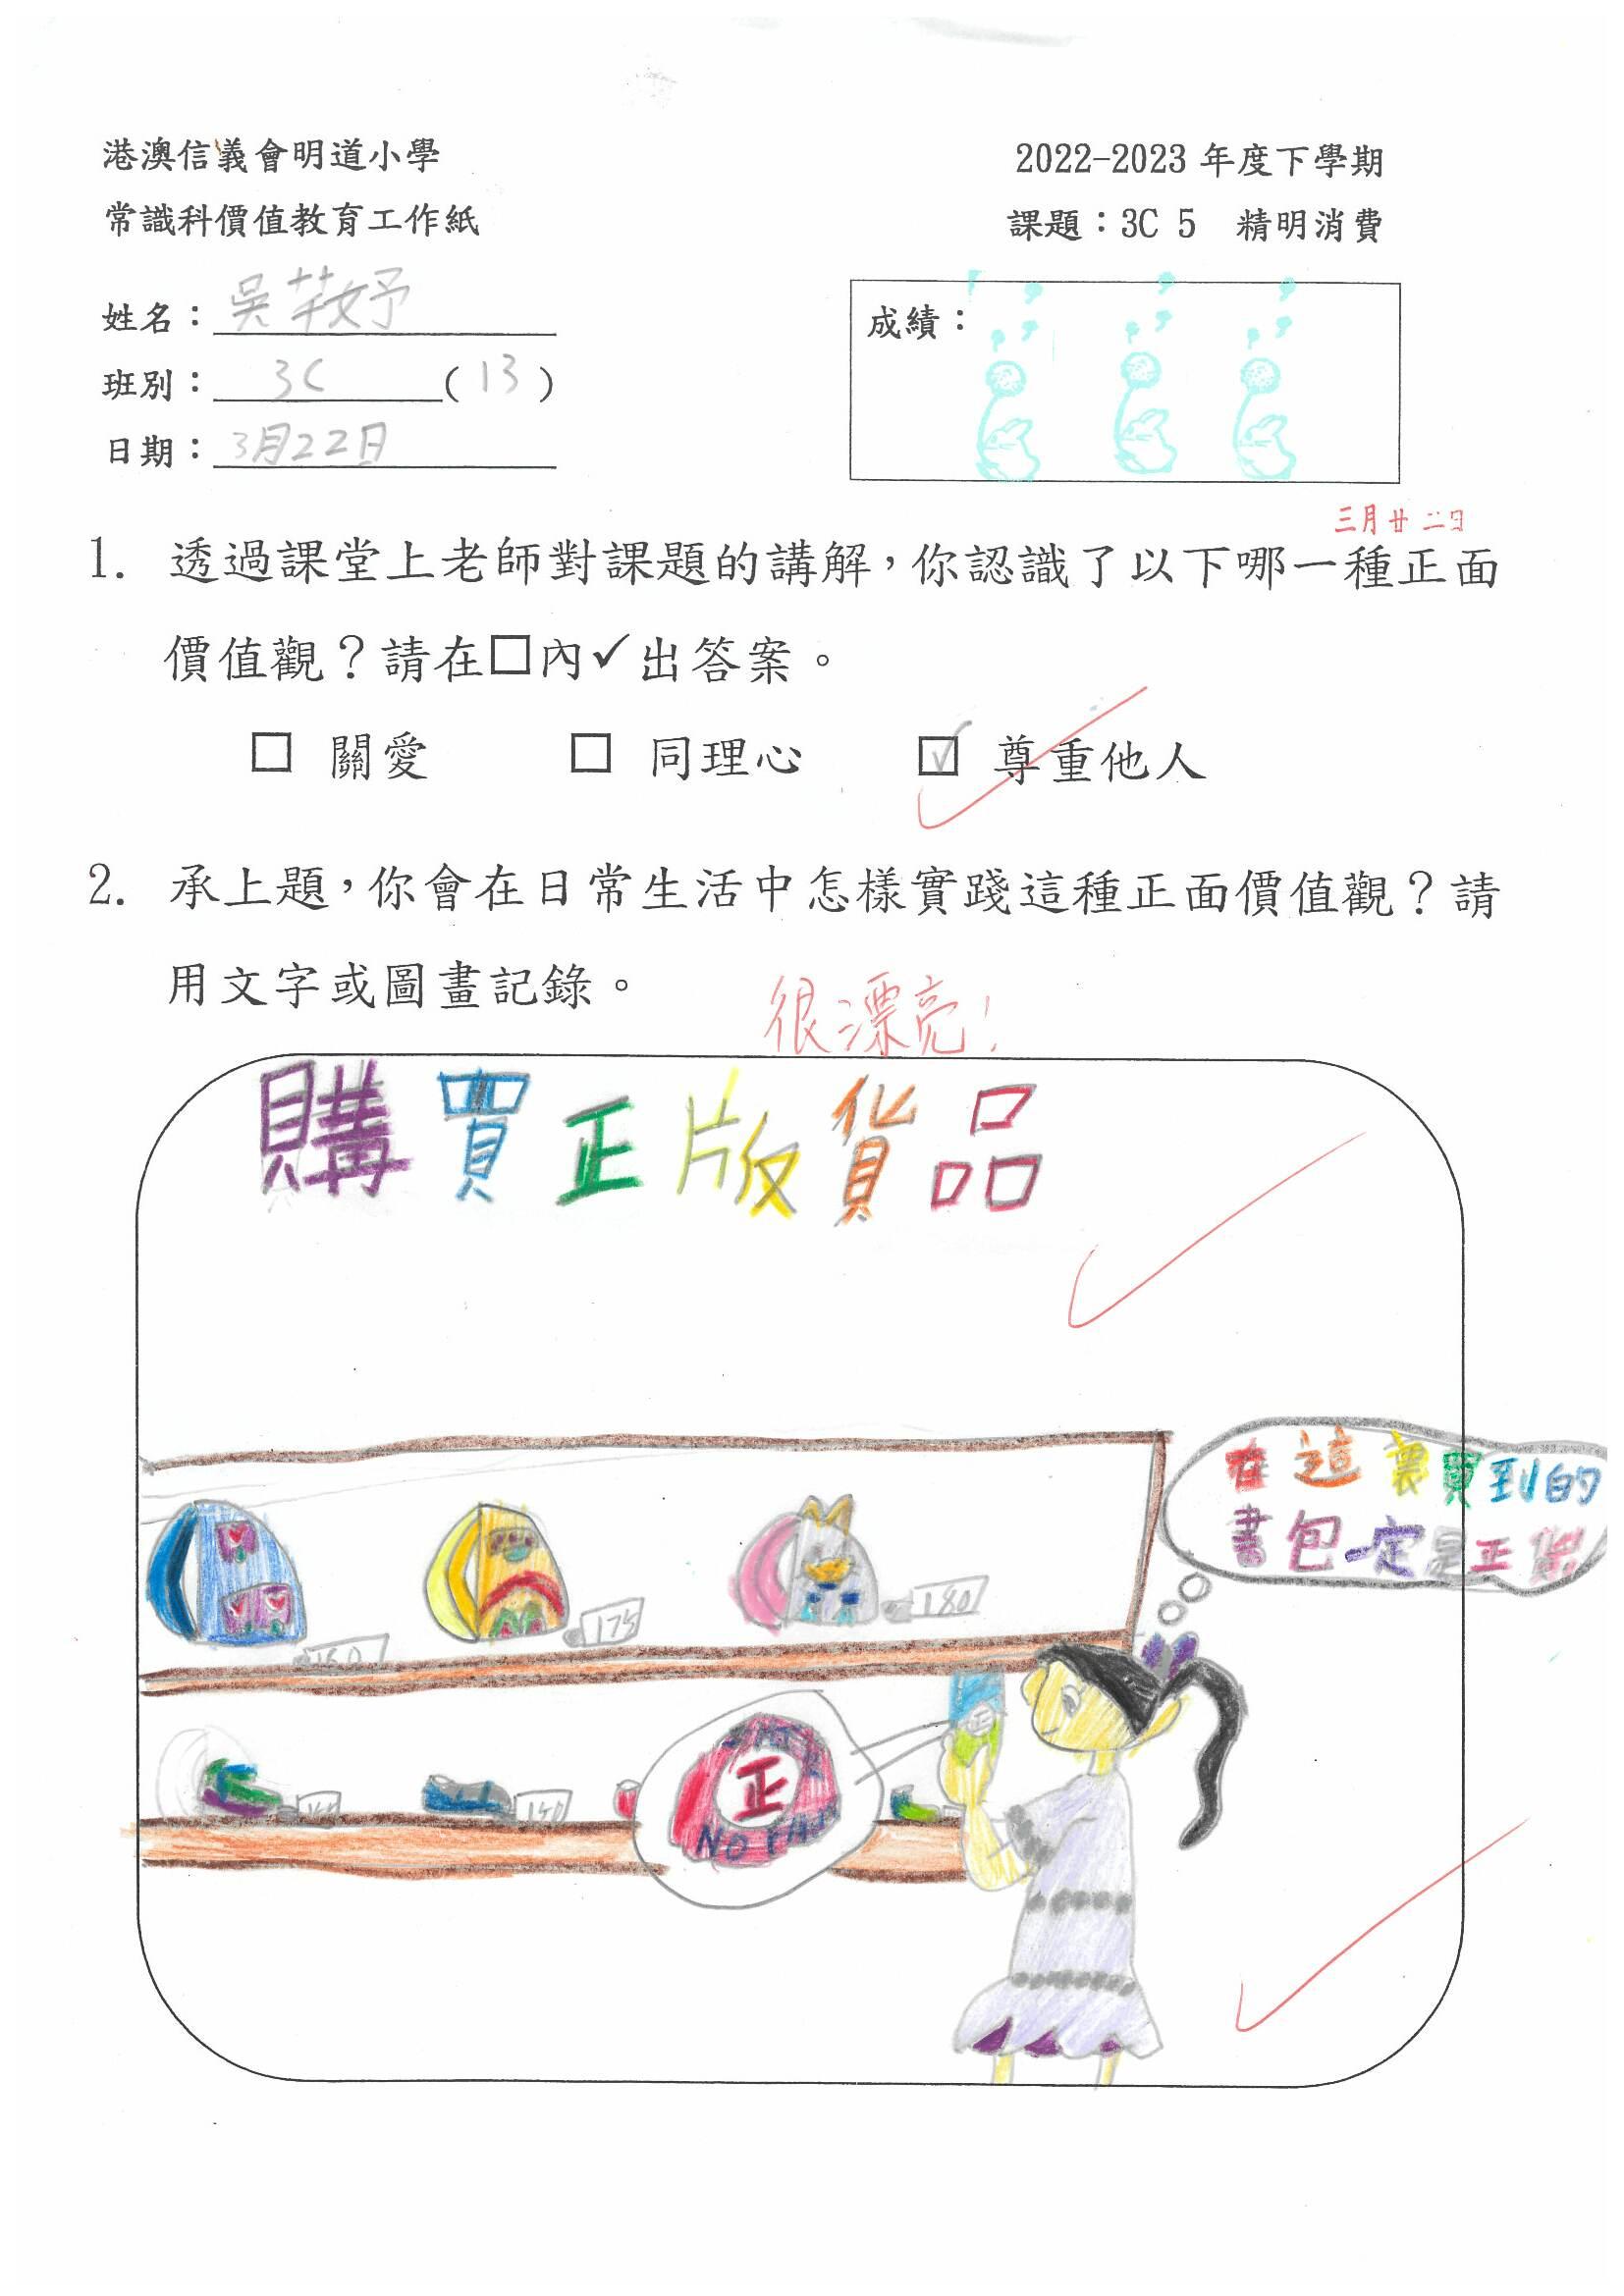 港澳信義會明道小學
2022-2023 年度下學期
常識科價值教育工作紙
課題：3C 5 精明消費
姓名：吳芊妤
班別：3C (13)
日期：3月22日
成績：
三月廿二日
1. 透過課堂上老師對課題的講解，你認識了以下哪一種正面
價值觀？請在□內✓出答案。
□ 關愛 □ 同理心 ☑ 尊重他人
2. 承上題，你會在日常生活中怎樣實踐這種正面價值觀？請
用文字或圖畫記錄。
很漂亮！
購買正版貨品
在這裏買到的
書包一定是正貨
160
175
180
150
正
NO FAKE